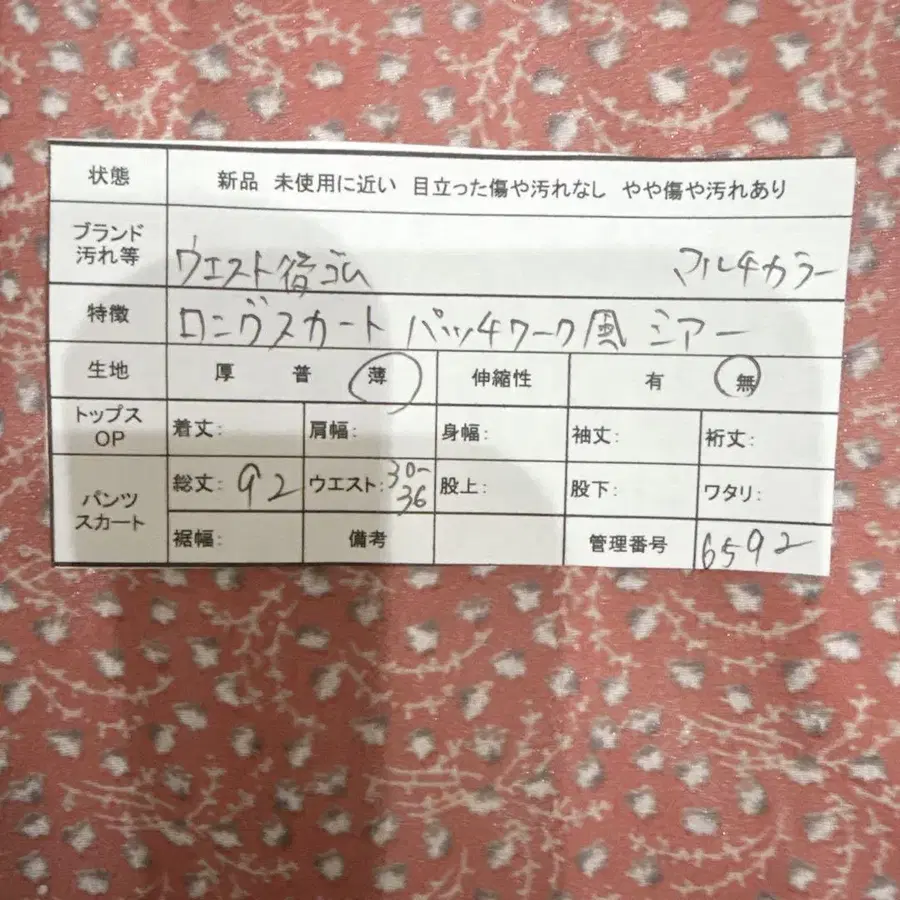 状態 新品 未使用に近い 目立った傷や汚れなし やや傷や汚れあり
ブランド
汚れ等 ウエスト後ゴム マルチカラー
特徴 ロングスカート パッチワーク風 シアー
生地 厚 普 薄 伸縮性 有 無
トップス
OP 着丈: 肩幅: 身幅: 袖丈: 裄丈:
パンツ
スカート 総丈: 92 ウエスト: 30-
36 股上: 股下: ワタリ:
裾幅: 備考 管理番号 6592